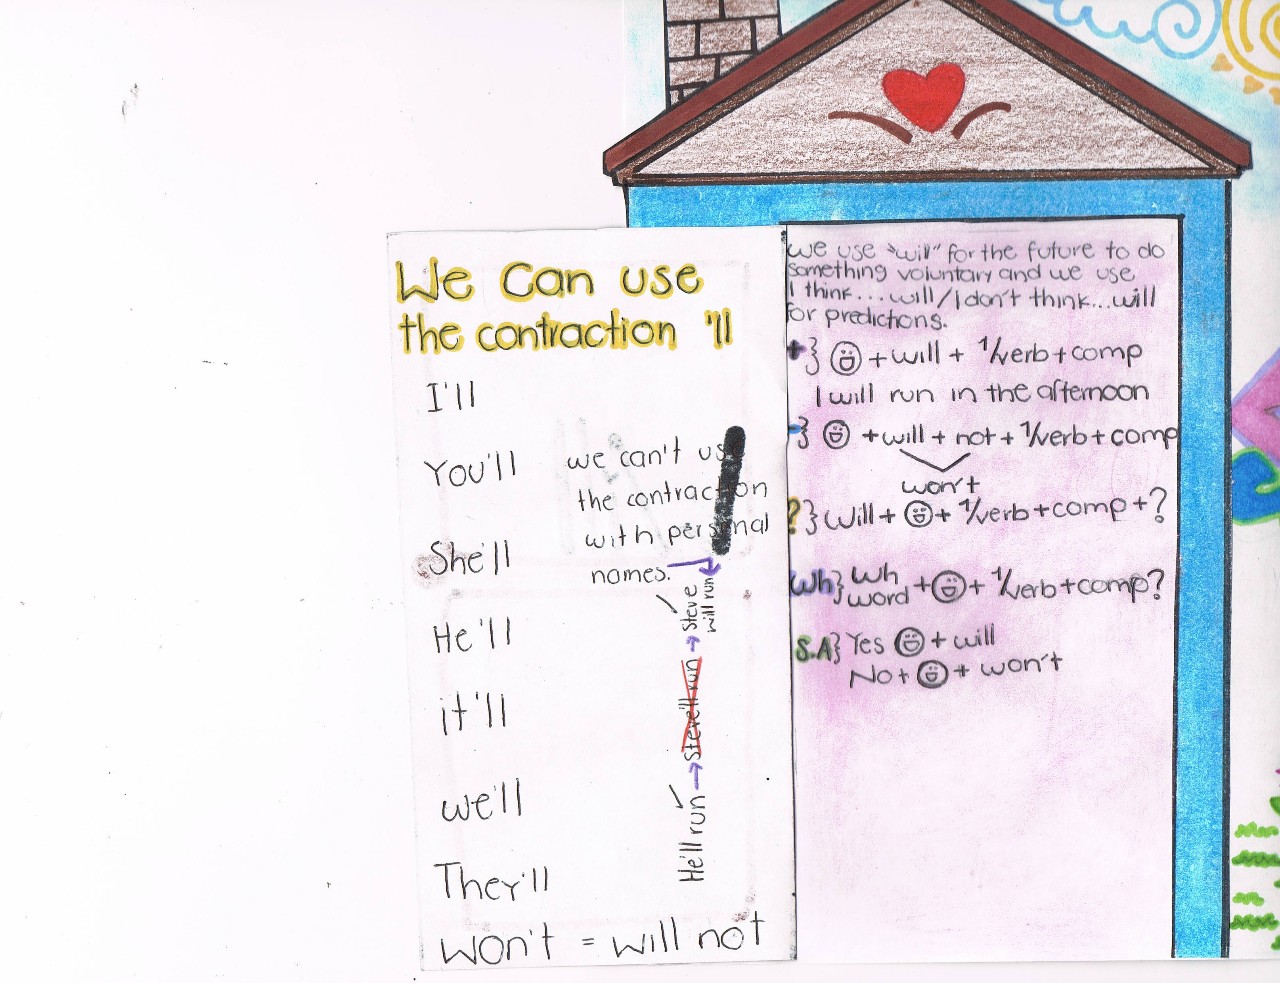 We Can use
the contraction 'll
I'll
You'll
She'll
He'll
it'll
we'll
They'll
won't = will not
we can't use
the contraction
with personal
names.
He'll run → Steve'll run → Steve
will run
we use "will" for the future to do
something voluntary and we use
I think...will/I don't think...will
for predictions.
+} + will + 1/verb + comp
I will run in the afternoon
-} + will + not + 1/verb + comp
won't
?} Will + + 1/verb + comp + ?
Wh} Wh
word + + 1/verb + comp?
S.A} Yes + will
No + + won't